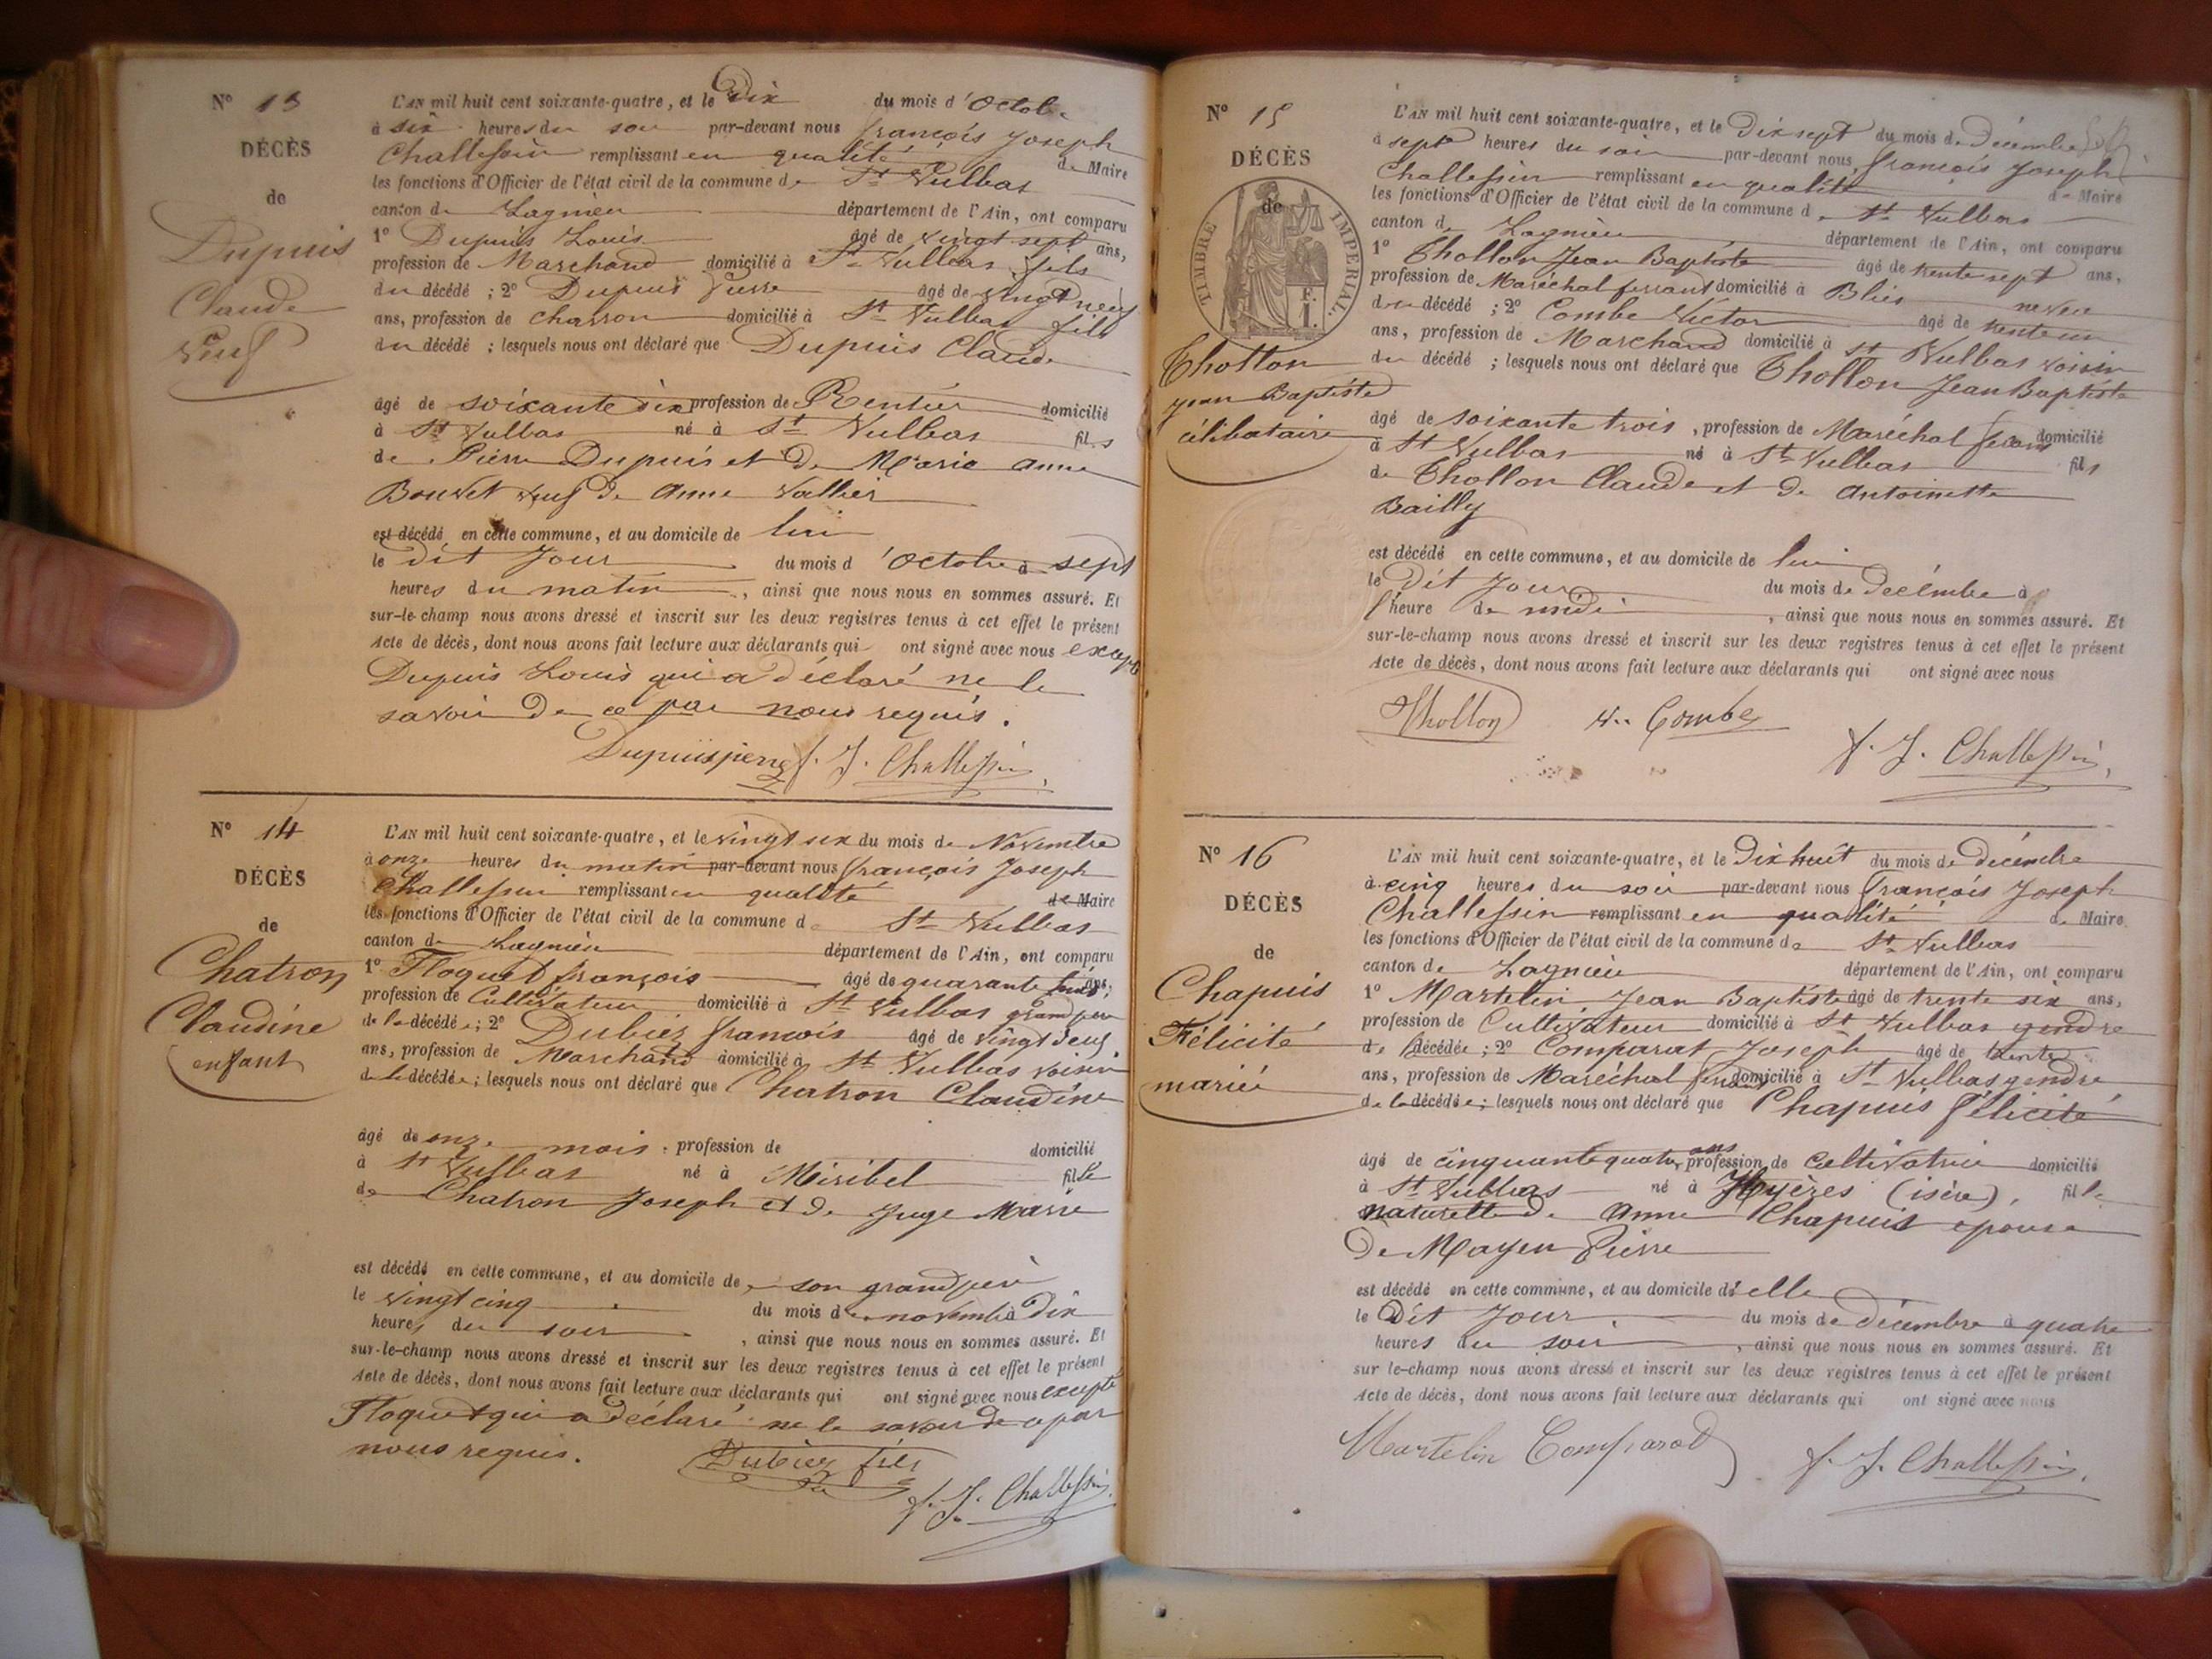 N° 13
DÉCÈS
de
Dupuis
Claude
Veuf
L'AN mil huit cent soixante-quatre, et le Dix du mois d'Octobre
à six heures du soir par-devant nous françois Joseph
Challessin remplissant en qualité de Maire
les fonctions d'Officier de l'état civil de la commune de St Vulbas
canton de Lagnieu département de l'Ain, ont comparu
1° Dupuis Louis âgé de vingt sept ans,
profession de Marchand domicilié à St Vulbas fils
du décédé ; 2° Dupuis Pierre âgé de vingt neuf
ans, profession de charron domicilié à St Vulbas fils
du décédé ; lesquels nous ont déclaré que Dupuis Claude
âgé de soixante dix profession de Rentier domicilié
à St Vulbas né à St Vulbas fils
de Pierre Dupuis et de Marie Anne
Bouvet veuf de Anne Vallier
est décédé en cette commune, et au domicile de lui
le dit Jour du mois d'Octobre à sept
heures du matin, ainsi que nous nous en sommes assuré. Et
sur-le-champ nous avons dressé et inscrit sur les deux registres tenus à cet effet le présent
Acte de décès, dont nous avons fait lecture aux déclarants qui ont signé avec nous excepté
Dupuis Louis qui a déclaré ne le
savoir de ce par nous requis.
Dupuispierre f. J. Challessin
N° 14
DÉCÈS
de
Chatron
Claudine
enfant
L'AN mil huit cent soixante-quatre, et le vingt six du mois de Novembre
à onze heures du matin par-devant nous françois Joseph
Challessin remplissant en qualité de Maire
les fonctions d'Officier de l'état civil de la commune de St Vulbas
canton de Lagnieu département de l'Ain, ont comparu
1° Floquet françois âgé de quarante ans,
profession de Cultivateur domicilié à St Vulbas grand père
de la décédée ; 2° Dubiez françois âgé de vingt deux
ans, profession de Marchand domicilié à St Vulbas voisin
de la décédée ; lesquels nous ont déclaré que Chatron Claudine
âgé de onze mois, profession de domicilié
à St Vulbas né à Miribel fille
de Chatron Joseph et de Juge Marie
est décédé en cette commune, et au domicile de son grand père
le vingt cinq du mois de novembre à Dix
heures du soir, ainsi que nous nous en sommes assuré. Et
sur-le-champ nous avons dressé et inscrit sur les deux registres tenus à cet effet le présent
Acte de décès, dont nous avons fait lecture aux déclarants qui ont signé avec nous excepté
Floquet qui a déclaré ne le savoir de ce par
nous requis.
Dubiez fils
f. J. Challessin
N° 15
DÉCÈS
de
TIMBRE IMPERIAL
F.
1.
Thollon
Jean Baptiste
célibataire
L'AN mil huit cent soixante-quatre, et le Dix sept du mois de Décembre
à sept heures du soir par-devant nous françois Joseph
Challessin remplissant en qualité de Maire
les fonctions d'Officier de l'état civil de la commune de St Vulbas
canton de Lagnieu département de l'Ain, ont comparu
1° Thollon Jean Baptiste âgé de trente sept ans,
profession de Maréchal ferrant domicilié à Blies neveu
du décédé ; 2° Combe Victor âgé de trente un
ans, profession de Marchand domicilié à St Vulbas voisin
du décédé ; lesquels nous ont déclaré que Thollon Jean Baptiste
âgé de soixante trois, profession de Maréchal ferrant domicilié
à St Vulbas né à St Vulbas fils
de Thollon Claude et de Antoinette
Bailly
est décédé en cette commune, et au domicile de lui
le Dit Jour du mois de Décembre à
l'heure de midi, ainsi que nous nous en sommes assuré. Et
sur-le-champ nous avons dressé et inscrit sur les deux registres tenus à cet effet le présent
Acte de décès, dont nous avons fait lecture aux déclarants qui ont signé avec nous
Thollon Combe
f. J. Challessin
N° 16
DÉCÈS
de
Chapuis
Félicité
mariée
L'AN mil huit cent soixante-quatre, et le Dix huit du mois de décembre
à cinq heures du soir par-devant nous françois Joseph
Challessin remplissant en qualité de Maire
les fonctions d'Officier de l'état civil de la commune de St Vulbas
canton de Lagnieu département de l'Ain, ont comparu
1° Martelin Jean Baptiste âgé de trente six ans,
profession de Cultivateur domicilié à St Vulbas gendre
de la décédée ; 2° Comparat Joseph âgé de trente
ans, profession de Maréchal ferrant domicilié à St Vulbas gendre
de la décédée ; lesquels nous ont déclaré que Chapuis félicité
âgé de cinquante quatre ans profession de Cultivatrice domicilié
à St Vulbas né à Hyères (isère), fille
naturelle de Anne Chapuis épouse
De Mayen Pierre
est décédé en cette commune, et au domicile d'elle
le Dit Jour du mois de décembre à quatre
heures du soir, ainsi que nous nous en sommes assuré. Et
sur le-champ nous avons dressé et inscrit sur les deux registres tenus à cet effet le présent
Acte de décès, dont nous avons fait lecture aux déclarants qui ont signé avec nous
Martelin Comparat f. J. Challessin